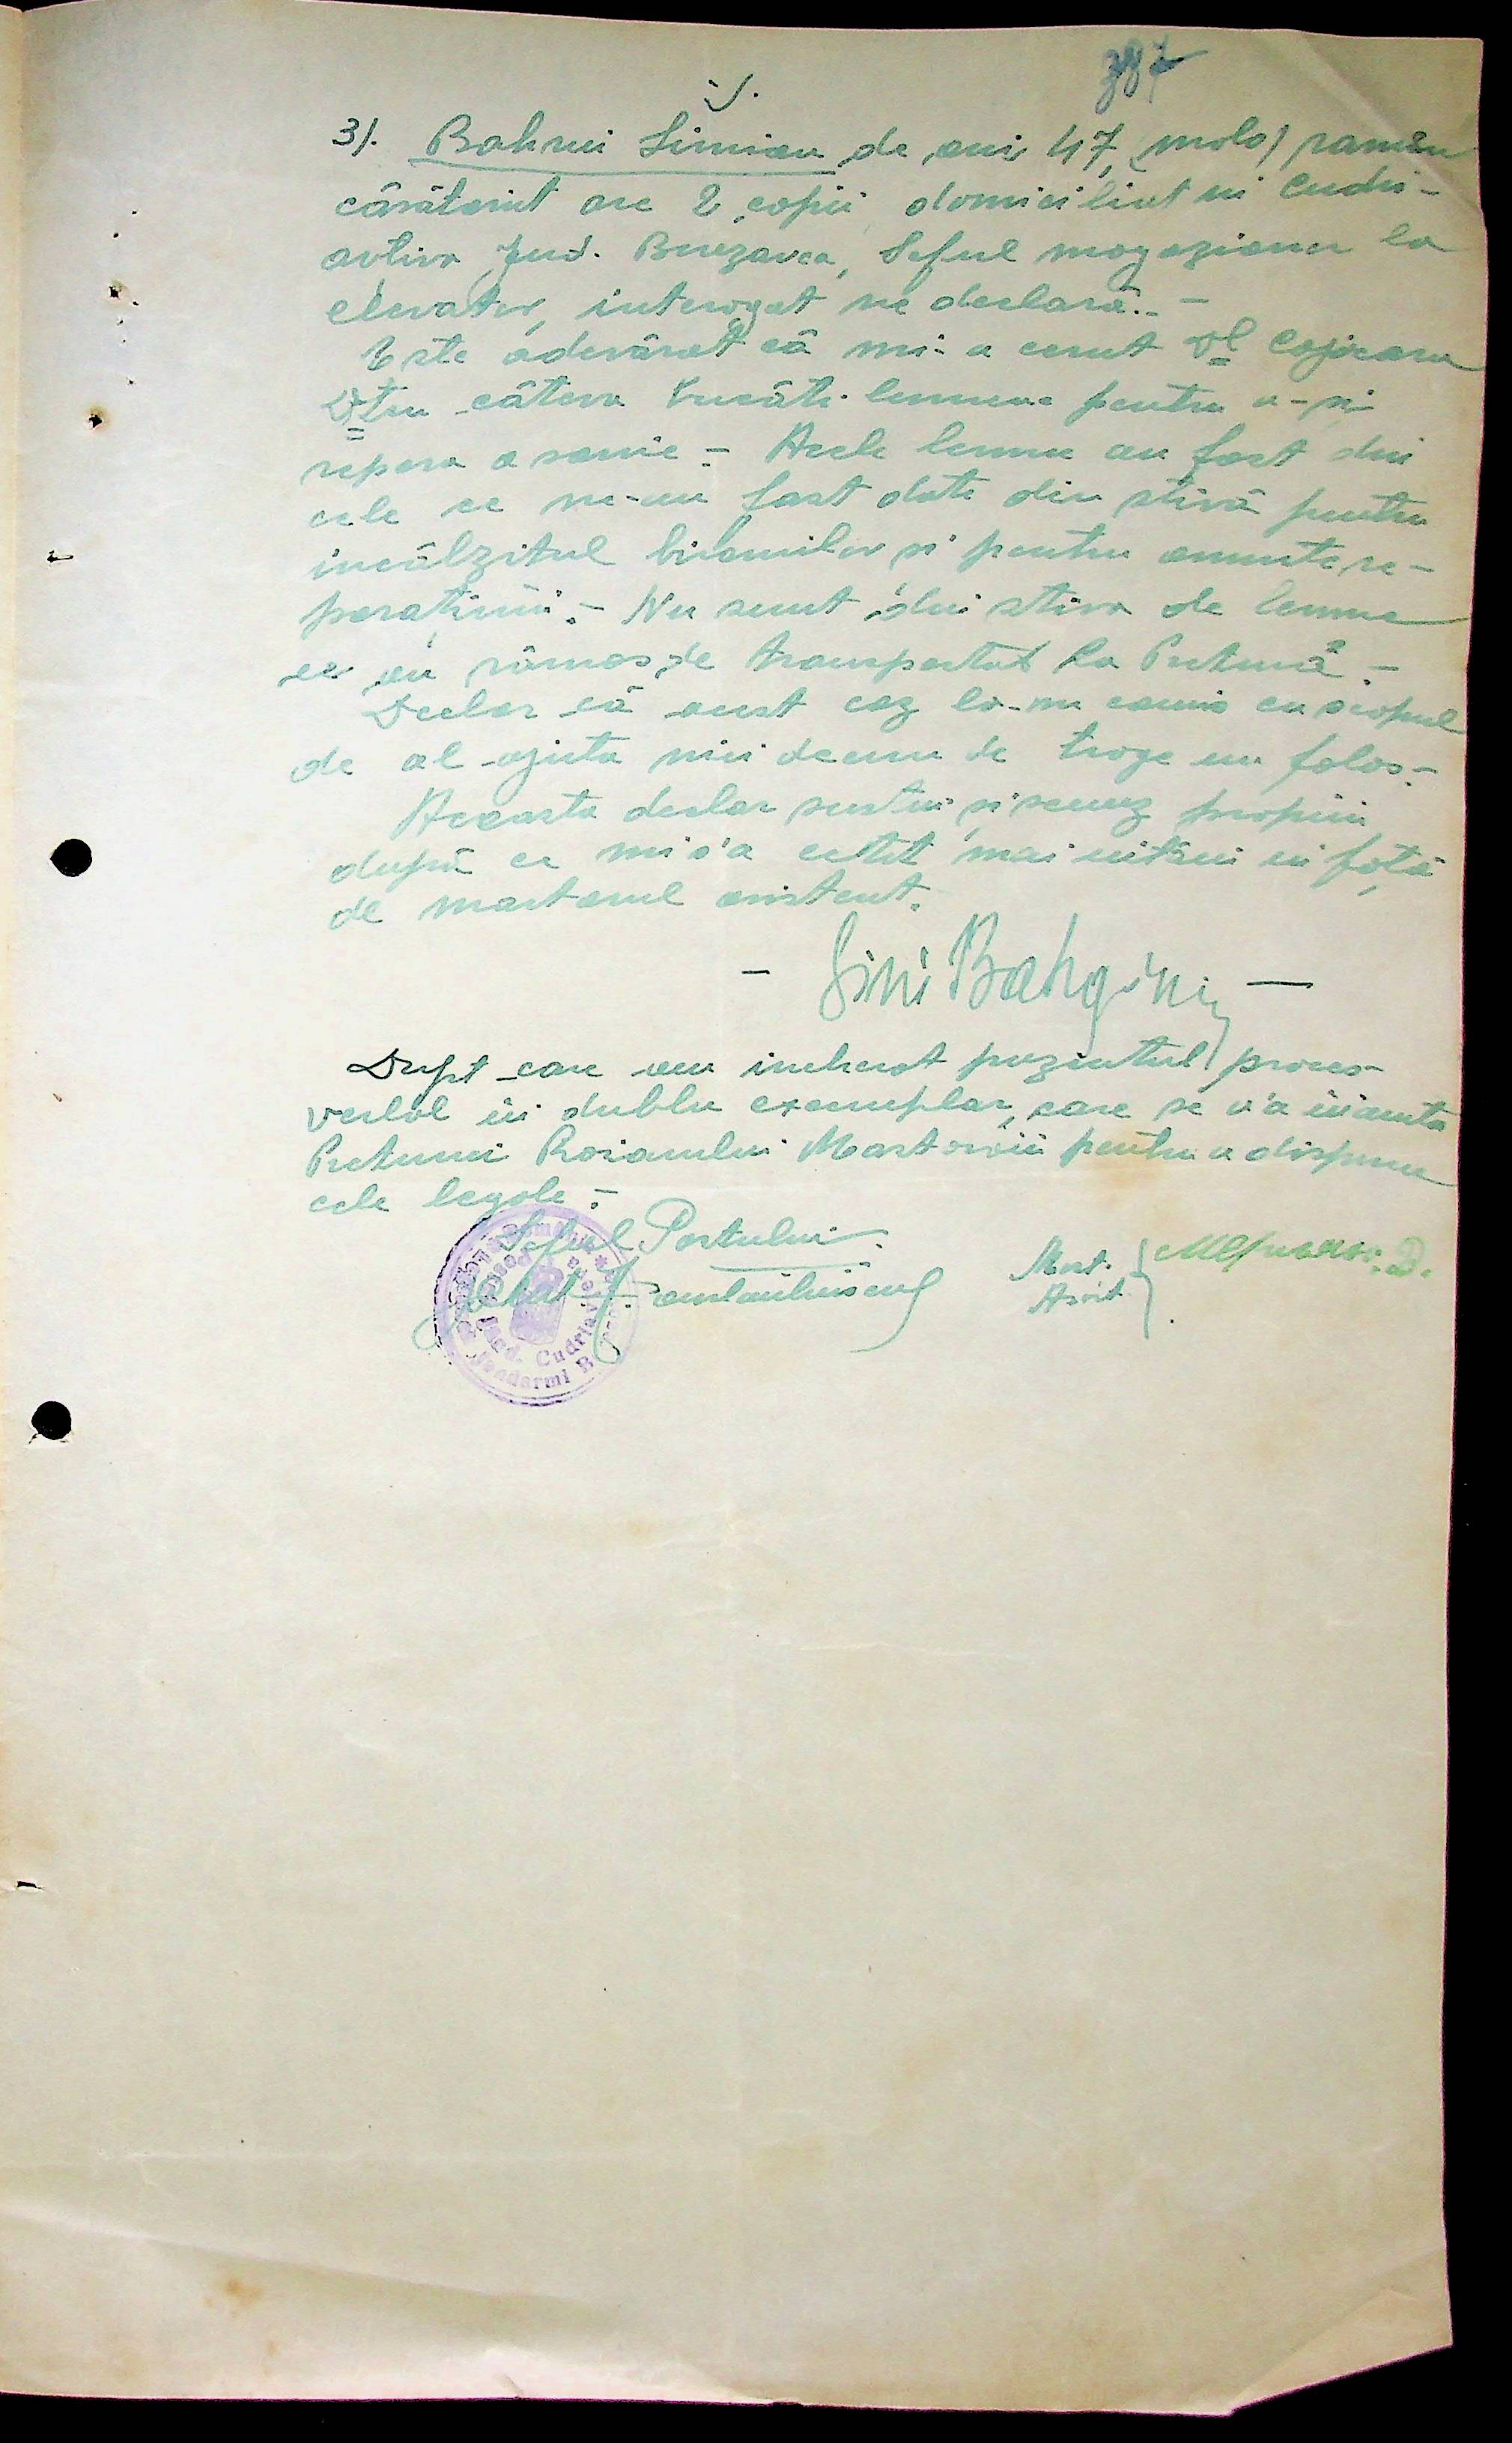 387
3). Bahrin Simion de ani 47, (mold) român
căsătorit are 2 copii domiciliat în Cudri-
avtiva Jud. Berezovca, Seful magazioner la
elevator, interogat ne declară. -
Este adevărat că mi-a cerut Dl Cojocaru
Dtru câteva bucăti lemne pentru a-si
repara o sanie - Acele lemne au fost din
cele ce ne-au fost date din stivă pentru
incălzitul birourilor si pentru anumite re-
paratiuni. - Nu sunt din stiva de lemne
ce au rămas de transportat la Pretură. -
Declar că acest caz l-am comis cu scopul
de al ajuta nici decum de trage un folos. -
Aceasta declar sustin si semnez propriu
după ce mi s'a cetit mai întâi in fată
de martorul asistent.
- Simi Bahgini -
Dupt care am incheiat prezentul proces-
verbal in dublu exemplar, care se v'a inainta
Preturei Raionului Mostovoiu pentru a dispune
cele legale -
Seful Postului
Mart.
Asist.
Jand. Cudriavtе
Jandarmi B